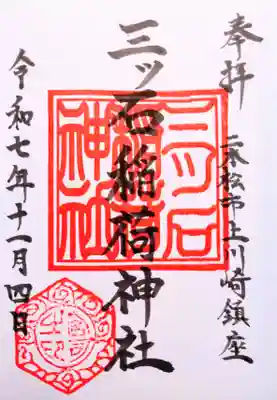 奉拝
二本松市上川崎鎮座
三ッ石稲荷神社
三ツ石
稲荷
神社
令和七年十一月四日